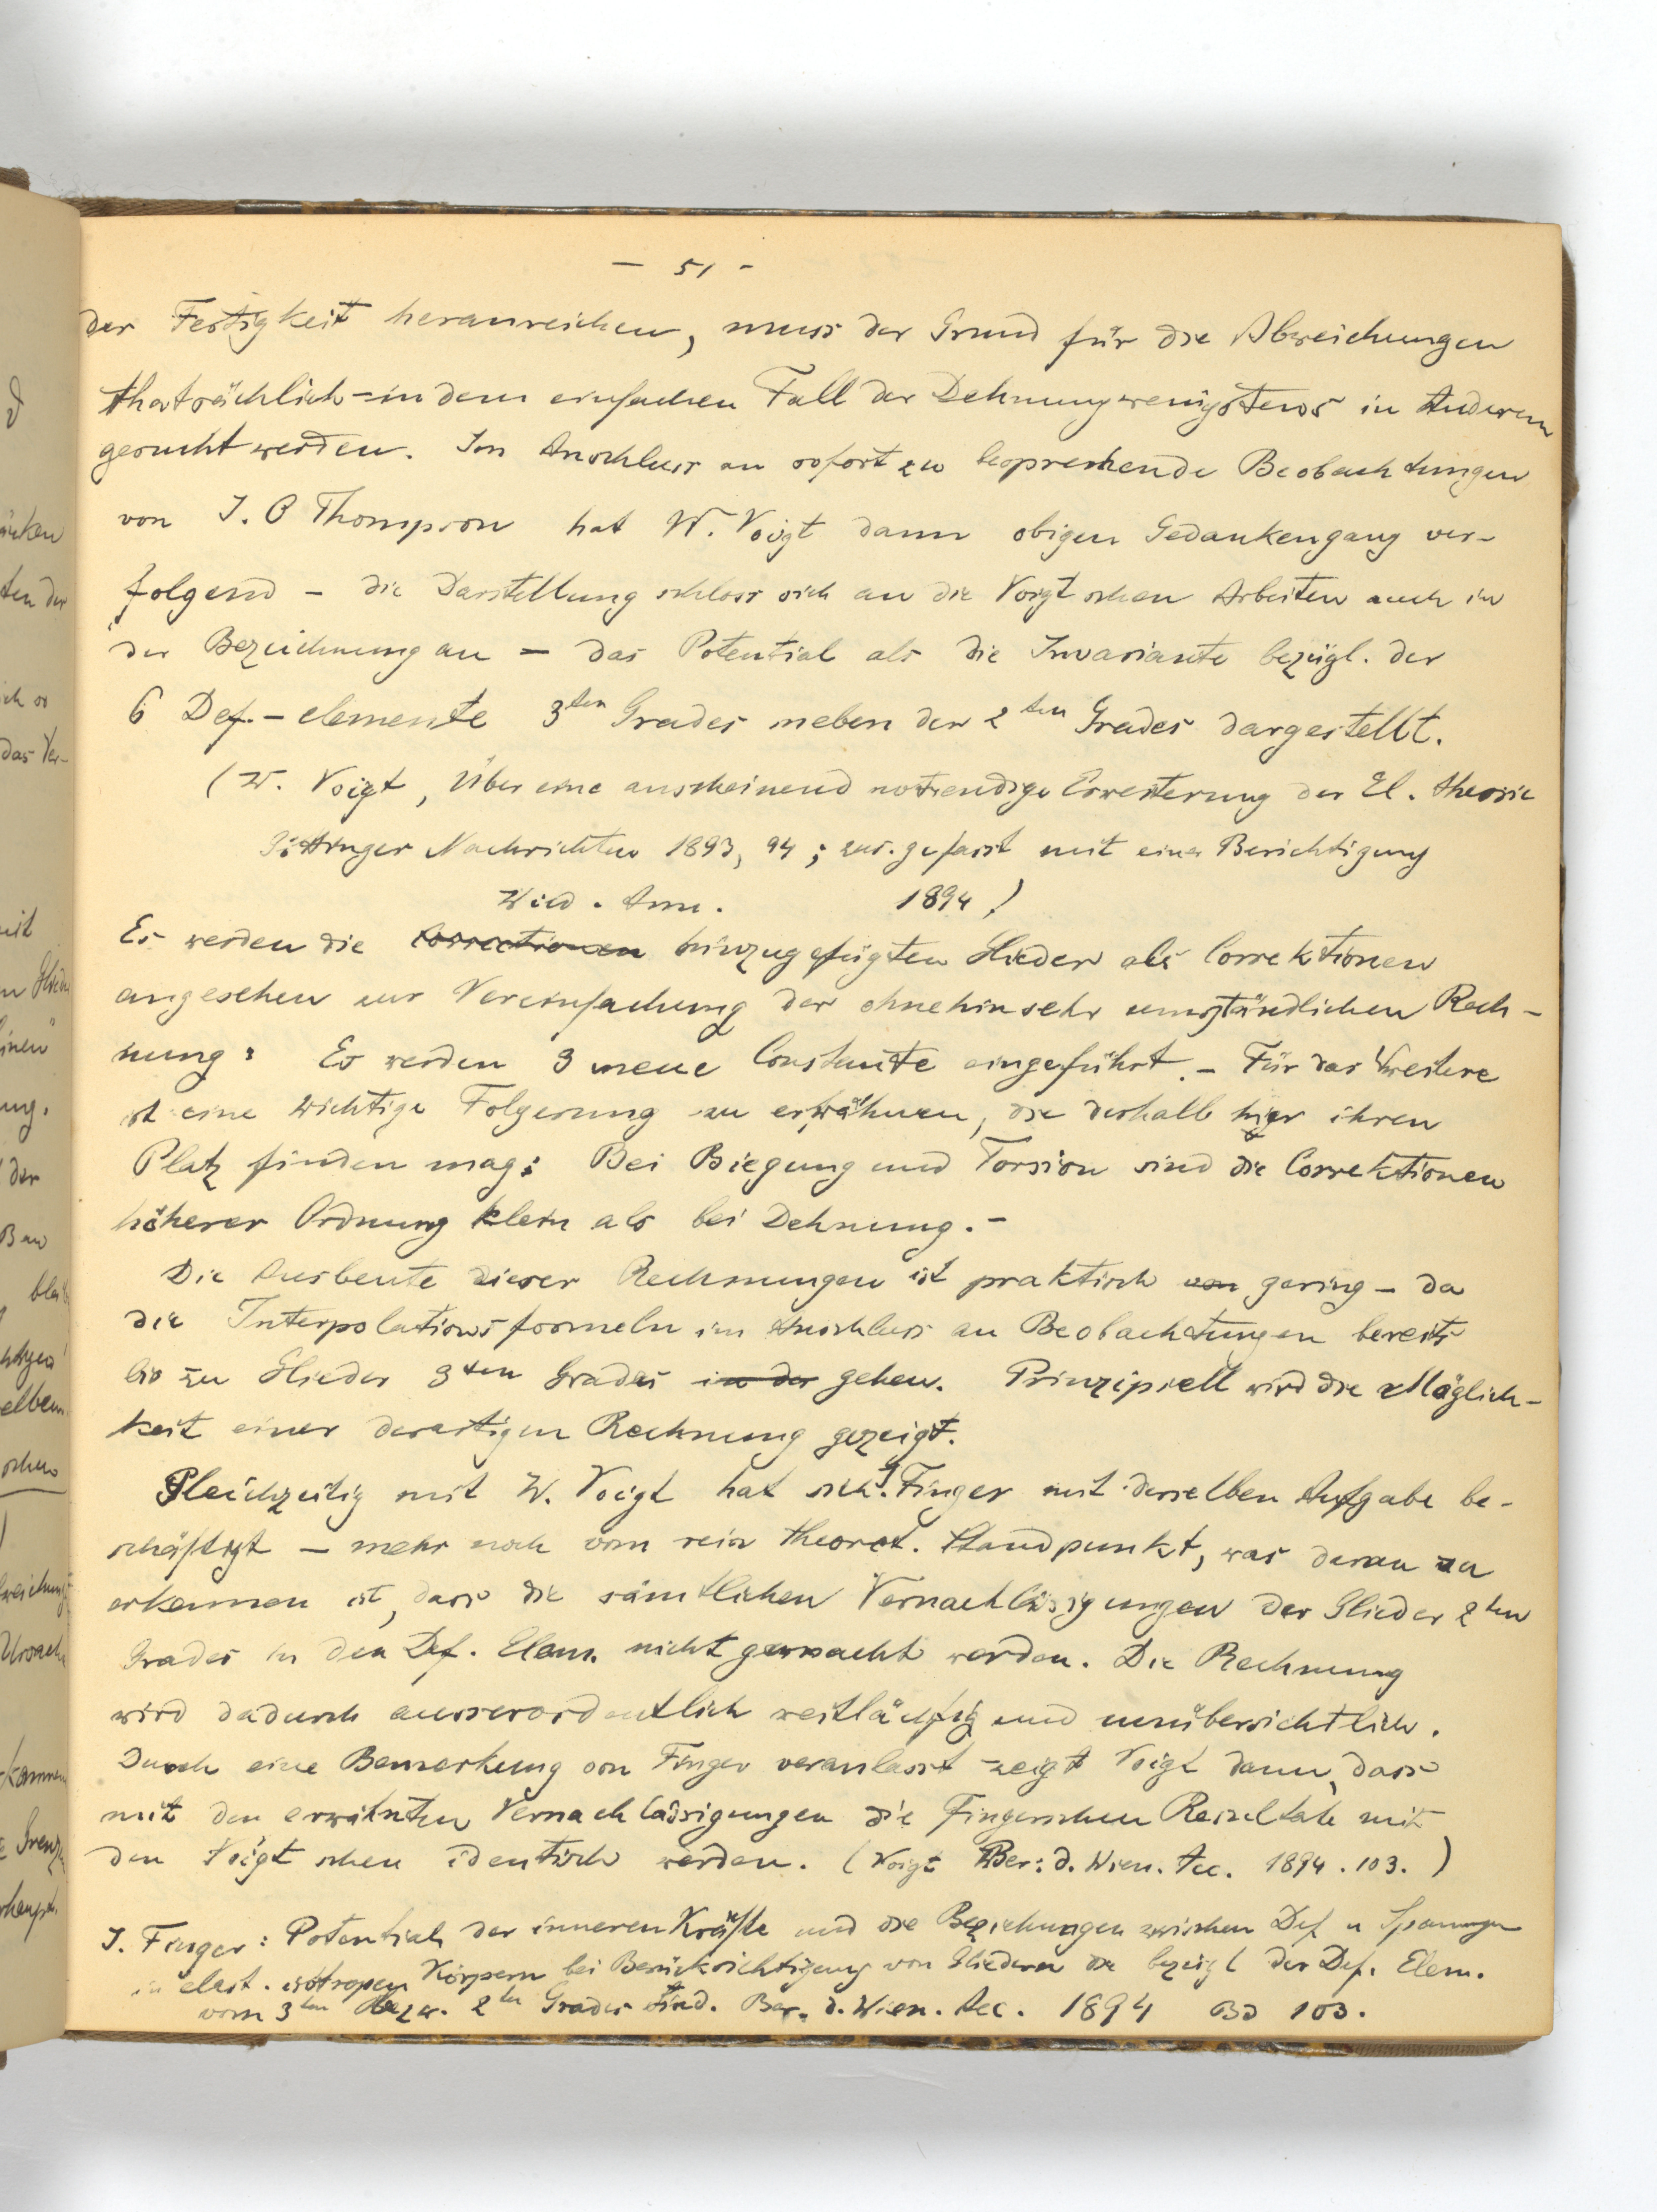 – 51 –
der Festigkeit heranreichen, muss der Grund für die Abweichungen
thatsächlich – in dem einfachen Fall der Dehnung wenigstens in Anderem
gesucht werden. Im Anschluss an sofort zu besprechende Beobachtungen
von J. O Thompson hat W. Voigt dann obigen Gedankengang ver-
folgend – die Darstellung schloss sich an die Voigtschen Arbeiten auch in
der Bezeichnung an – das Potential als die Invariante bezügl. der
6 Def. – elemente 3ten Grades neben der 2ten Grades dargestellt.
(W. Voigt, Über eine anscheinend notwendige Erweiterung der El. theorie
Göttinger Nachrichten 1893, 94; zus. gefasst mit einer Berichtigung
Wied. Ann. 1894!)
Es werden die Correctionen hinzugefügten Glieder als Correktionen
angesehen zur Vereinfachung der ohnehin sehr umständlichen Rech-
nung: Es werden 3 neue Constante eingeführt. – Für das Weitere
ist eine wichtige Folgerung zu erwähnen, die deshalb hier ihren
Platz finden mag: Bei Biegung und Torsion sind die Correktionen
höherer Ordnung klein als bei Dehnung. –
Die Ausbeute dieser Rechnungen ist praktisch von gering – da
die Interpolationsformeln im Anschluss an Beobachtungen bereits
bis zu Glieder 3ten Grades in der gehen. Prinzipiell wird die Möglich-
keit einer derartigen Rechnung gezeigt.
Gleichzeitig mit W. Voigt hat sich J. Finger mit derselben Aufgabe be-
schäftigt – mehr noch vom rein theoret. Standpunkt, was daran zu
erkennen ist, dass die sämtlichen Vernachlässigungen der Glieder 2ten
Grades in den Def. Elem. nicht gemacht werden. Die Rechnung
wird dadurch ausserordentlich weitläufig und unübersichtlich.
Durch eine Bemerkung von Finger veranlasst zeigt Voigt dann, dass
mit den erwähnten Vernachlässigungen die Fingerschen Resultate mit
den Voigtschen identisch werden. (Voigt Ber: d. Wien. Acc. 1894. 103.)
J. Finger: Potential der inneren Kräfte und die Beziehungen zwischen Def u Spannungen
in elast. isotropen Körpern bei Berücksichtigung von Gliedern die bezügl der Def. Elem.
vom 3ten bezw. 2ten Grades sind. Ber. d. Wien. Acc. 1894 Bd 103.